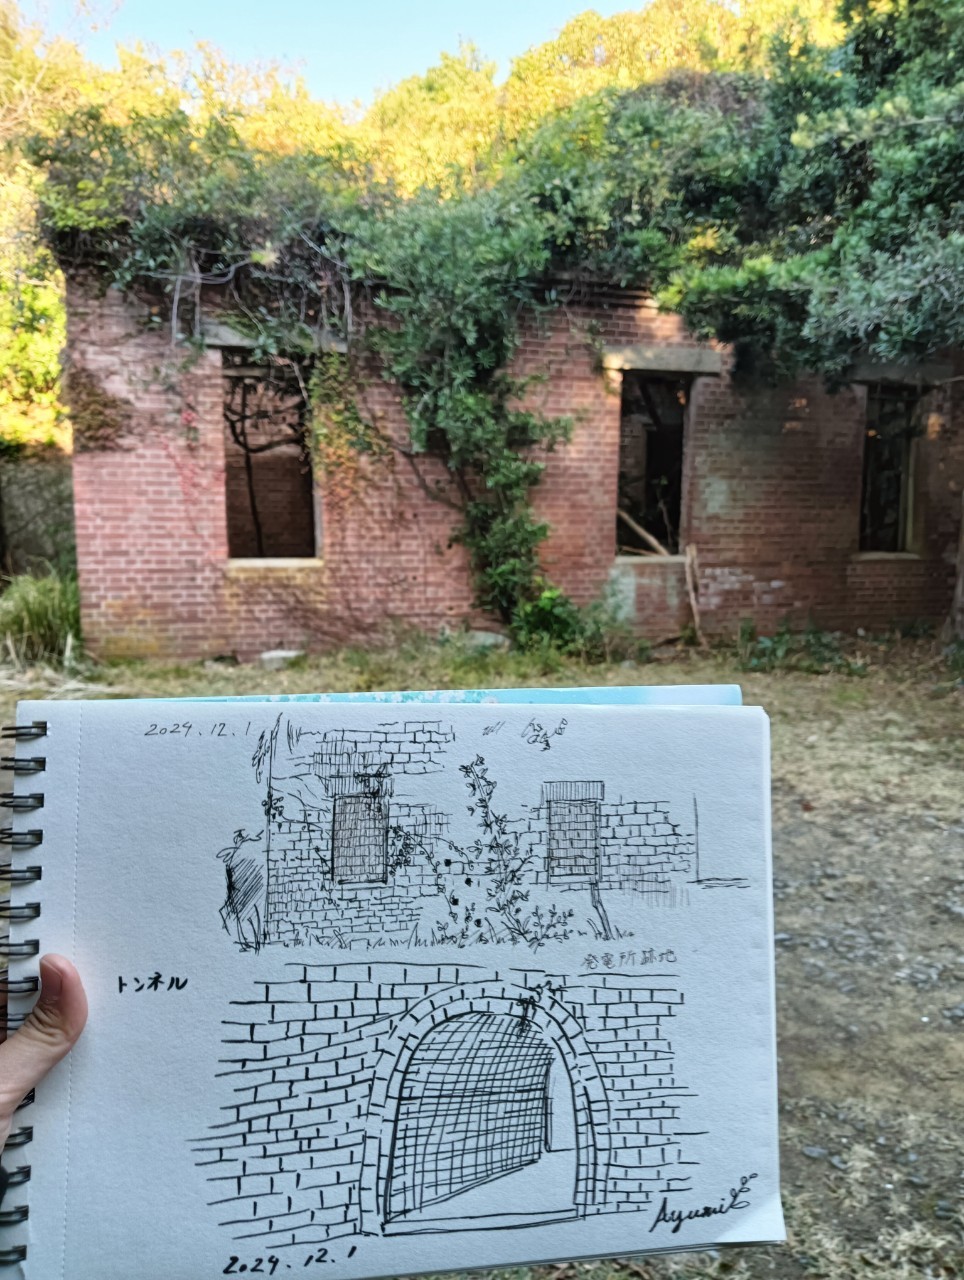 2024.12.1
発電所跡地
トンネル
Ayumi
2024.12.1